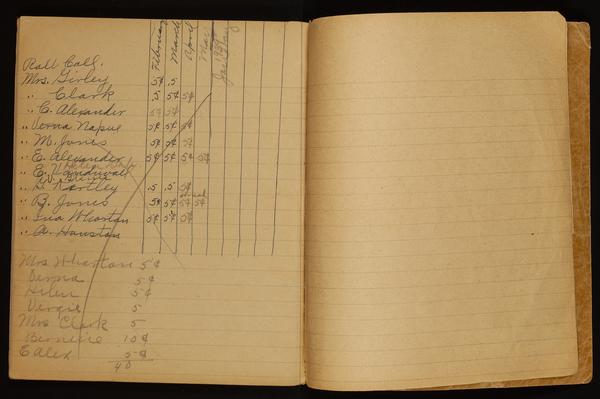 February March April May
Roll Call.
Mrs. Girley 5¢ .5
" Clark .5 5¢ 5¢
" C. Alexander 5¢ 5¢
" Verna Napue 5¢ 5¢ 5¢
" M. Jones 5¢ 5¢ 5¢
" E. Alexander 5¢ 5¢ 5¢ 5¢
" E. Vanduvall
" H. Nartley .5 .5 5¢
" B. Jones 5¢ 5¢ 5¢ 5¢
" Ina Wharton 5¢ 5¢ 5¢
" A. Houston
Mrs Wharton 5¢
Verna 5¢
Helen 5¢
Virgie 5
Mrs Clark 5
Birneice 10¢
E Alex 5¢
40